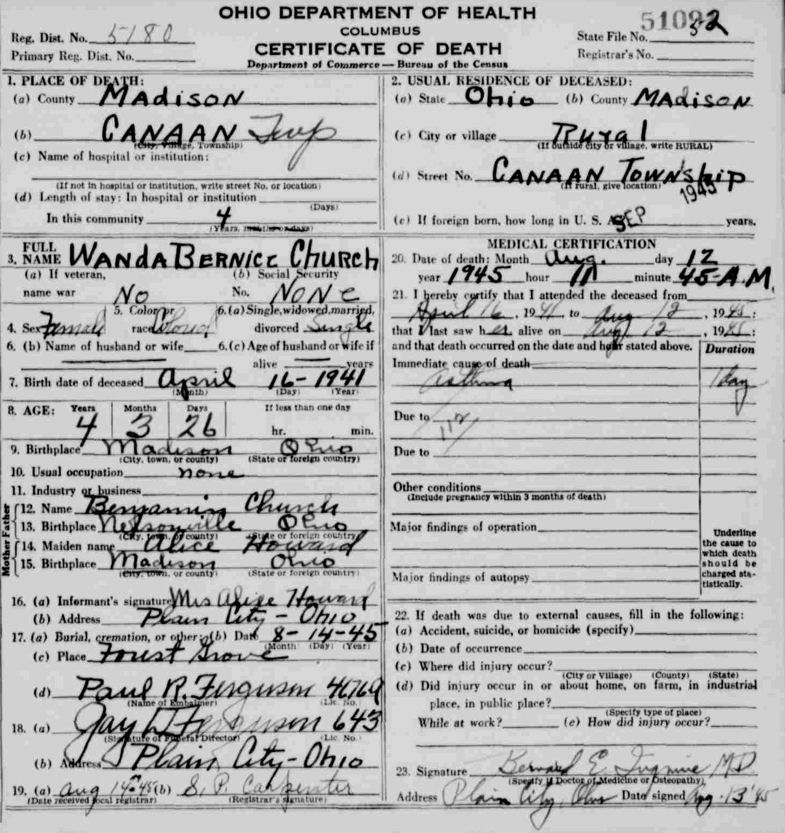 OHIO DEPARTMENT OF HEALTH
COLUMBUS
CERTIFICATE OF DEATH
Department of Commerce — Bureau of the Census
Reg. Dist. No. 5180
Primary Reg. Dist. No.
51092
State File No. 52
Registrar's No.
1. PLACE OF DEATH:
(a) County MADISON
(b) CANAAN Twp
(City, Village, Township)
(c) Name of hospital or institution:
(If not in hospital or institution, write street No. or location)
(d) Length of stay: In hospital or institution
(Days)
In this community 4
(Years, months or days)
2. USUAL RESIDENCE OF DECEASED:
(a) State Ohio (b) County MADISON
(c) City or village Rural
(If outside city or village, write RURAL)
(d) Street No. CANAAN TOWNSHIP
(If rural, give location)
(e) If foreign born, how long in U. S. A. years.
SEP 1945
3. FULL NAME WANDA BERNICE CHURCH
(a) If veteran, name war No
(b) Social Security No. NONE
4. Sex Female 5. Color or race Colored 6. (a) Single, widowed, married, divorced Single
6. (b) Name of husband or wife 6. (c) Age of husband or wife if alive years
7. Birth date of deceased April 16-1941
(Month) (Day) (Year)
8. AGE: Years Months Days If less than one day
4 3 26 hr. min.
9. Birthplace Madison Ohio
(City, town, or county) (State or foreign country)
10. Usual occupation none
11. Industry or business
Father
12. Name Benjamin Church
13. Birthplace Nelsonville Ohio
(City, town, or county) (State or foreign country)
Mother
14. Maiden name Alice Howard
15. Birthplace Madison Ohio
(City, town, or county) (State or foreign country)
16. (a) Informant's signature Mrs Alise Howard
(b) Address Plain City - Ohio
17. (a) Burial, cremation, or other (b) Date 8-14-45
(Month) (Day) (Year)
(c) Place Forest Grove
(d) Paul R. Ferguson 4676a
(Name of Embalmer) (Lic. No.
18. (a) Jay L Ferguson 643
(Signature of Funeral Director) (Lic. No.
(b) Address Plain City-Ohio
19. (a) Aug 14-45 (b) S. P. Carpenter
(Date received local registrar) (Registrar's signature)
MEDICAL CERTIFICATION
20. Date of death: Month Aug. day 12
year 1945 hour 11 minute 45-A.M.
21. I hereby certify that I attended the deceased from
April 16, 1941, to Aug 12, 1945:
that I last saw her alive on Aug 12, 1945:
and that death occurred on the date and hour stated above.
Duration
Immediate cause of death
asthma 1 day
Due to 112
Due to
Other conditions
(Include pregnancy within 3 months of death)
Major findings of operation
Major findings of autopsy
Underline the cause to which death should be charged statistically.
22. If death was due to external causes, fill in the following:
(a) Accident, suicide, or homicide (specify)
(b) Date of occurrence
(c) Where did injury occur?
(City or Village) (County) (State)
(d) Did injury occur in or about home, on farm, in industrial
place, in public place?
(Specify type of place)
While at work? (e) How did injury occur?
23. Signature Bernard E. M.D.
(Specify if Doctor of Medicine or Osteopathy)
Address Plain City, Ohio Date signed Aug. 13 '45